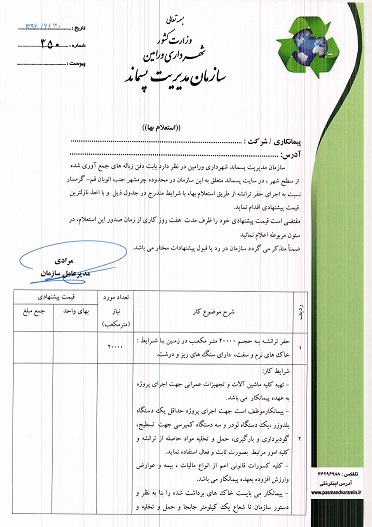 بسمه تعالی
وزارت کشور
شهرداری ورامین
سازمان مدیریت پسماند
تاریخ :
شماره : ۳۵۰
پیوست :
((استعلام بها))
پیمانکاری / شرکت :
آدرس :
سازمان مدیریت پسماند شهرداری ورامین در نظر دارد بابت دفن زباله های جمع آوری شده
از سطح شهر ، در سایت پسماند متعلق به این سازمان در محدوده چرمشهر جنب اتوبان قم- گرمسار
نسبت به اجرای حفر ترانشه از طریق استعلام بهاء با شرایط مندرج در جدول ذیل و با اخذ نازلترین
قیمت پیشنهادی اقدام نماید.
مقتضی است قیمت پیشنهادی خود را ظرف مدت هفت روز کاری از زمان صدور این استعلام، در
ستون مربوطه اعلام نمائید
ضمناً متذکر می گردد سازمان در رد یا قبول پیشنهادات مختار می باشد.
مرادی
مدیرعامل سازمان
ردیف
شرح موضوع کار
تعداد مورد نیاز (مترمکعب)
قیمت پیشنهادی
بهای واحد
جمع مبلغ
۱
حفر ترانشه به حجم ۲۰۰۰۰ متر مکعب در زمین با شرایط :
خاک های نرم و سفت، دارای سنگ های ریز و درشت.
۲۰۰۰۰
۲
شرایط کار:
- تهیه کلیه ماشین آلات و تجهیزات عمرانی جهت اجرای پروژه
به عهده پیمانکار می باشد.
- پیمانکار موظف است جهت اجرای پروژه حداقل یک دستگاه
بلدوزر ، یک دستگاه لودر و سه دستگاه کمپرسی جهت تسطیح،
گودبرداری و بارگیری، حمل و تخلیه مواد حاصله از ترانشه و
کلیه امور مرتبط بصورت ثابت و فعال استفاده نماید.
- کلیه کسورات قانونی اعم از انواع مالیات ، بیمه و عوارض
وارزش افزوده بعهده پیمانکار می باشد.
- پیمانکار می بایست خاک های برداشت شده را بنا به نظر و
دستور سازمان تا شعاع یک کیلومتر جابجا و حمل و تخلیه و
تلفکس : ۳۶۲۹۶۹۸۸
آدرس اینترنتی
www.pasmandvaramin.ir